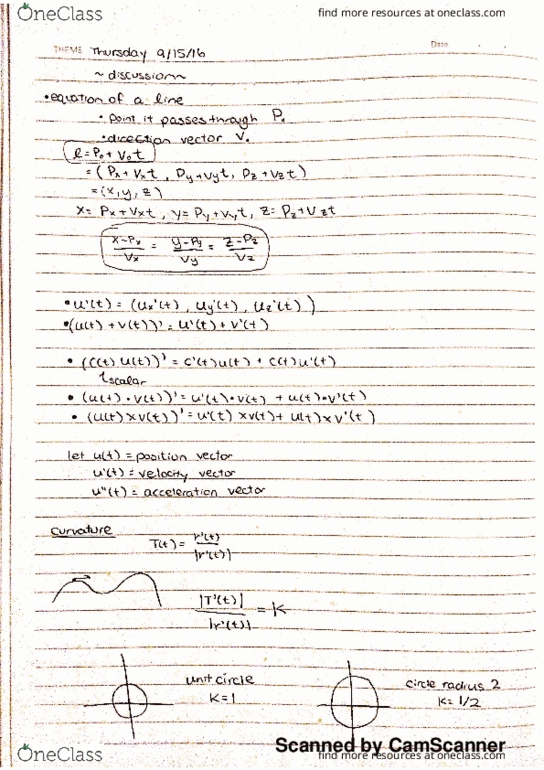 OneClass find more resources at oneclass.com
THEME Thursday 9/15/16 Date
~discussion~
•equation of a line
• point it passes through P₀
•direction vector V₀
l = P₀ + V₀t
= (Px + Vxt, Py + Vyt, Pz + Vzt)
= (x, y, z)
x = Px + Vxt, y = Py + Vyt, z = Pz + Vzt
(x-Px)/Vx = (y-Py)/Vy = (z-Pz)/Vz
• u'(t) = (ux'(t), uy'(t), uz'(t))
•(u(t) + v(t))' = u'(t) + v'(t)
• (c(t) u(t))' = c'(t)u(t) + c(t)u'(t)
scalar
• (u(t) • v(t))' = u'(t) • v(t) + u(t) • v'(t)
• (u(t) × v(t))' = u'(t) × v(t) + u(t) × v'(t)
let u(t) = position vector
u'(t) = velocity vector
u''(t) = acceleration vector
curvature
T(t) = r'(t)/|r'(t)|
|T'(t)|/|r'(t)| = K
unit circle circle radius 2
K=1 K=1/2
Scanned by CamScanner
OneClass find more resources at oneclass.com